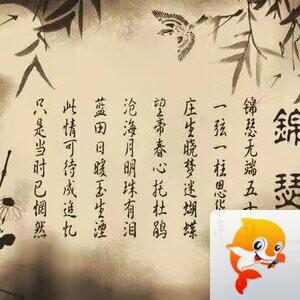 錦瑟
锦瑟无端五十
一弦一柱思华年
庄生晓梦迷蝴蝶
望帝春心托杜鹃
沧海月明珠有泪
蓝田日暖玉生烟
此情可待成追忆
只是当时已惘然